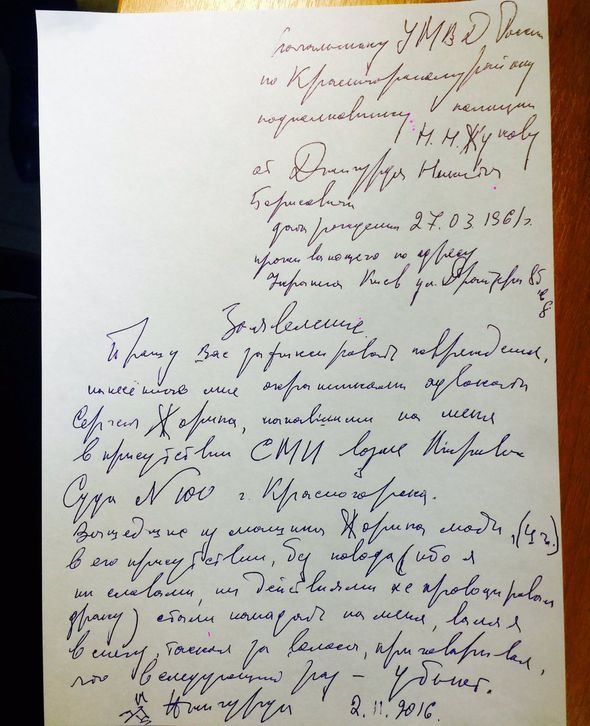 Начальнику УМВД России
по Красногорскому району
подполковнику полиции
Н. Н. Жукову
от Джигурда Никита
Борисович
дата рождения 27.03.1961г.
проживающего по адресу
Украина Киев ул. 85
кв 8
Заявление
Прошу Вас зафиксировать повреждения,
нанесённые мне охранниками адвоката
Сергея Жорина, напавшими на меня
в присутствии СМИ возле Мирового
Суда № 100 г. Красногорска.
Вышедшие из машины Жорина люди, (4 ч.)
в его присутствии, без повода (ибо я
ни словами, ни действиями не провоцировал
драку) стали нападать на меня, валяя
в снегу, таская за волосы, приговаривая,
что в следующий раз – убьют.
Джигурда 2.11.2016.